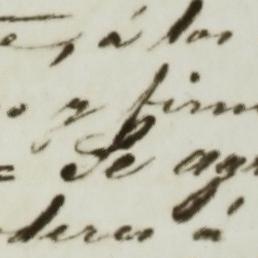 , á los
y firm
Se agr
oderes á